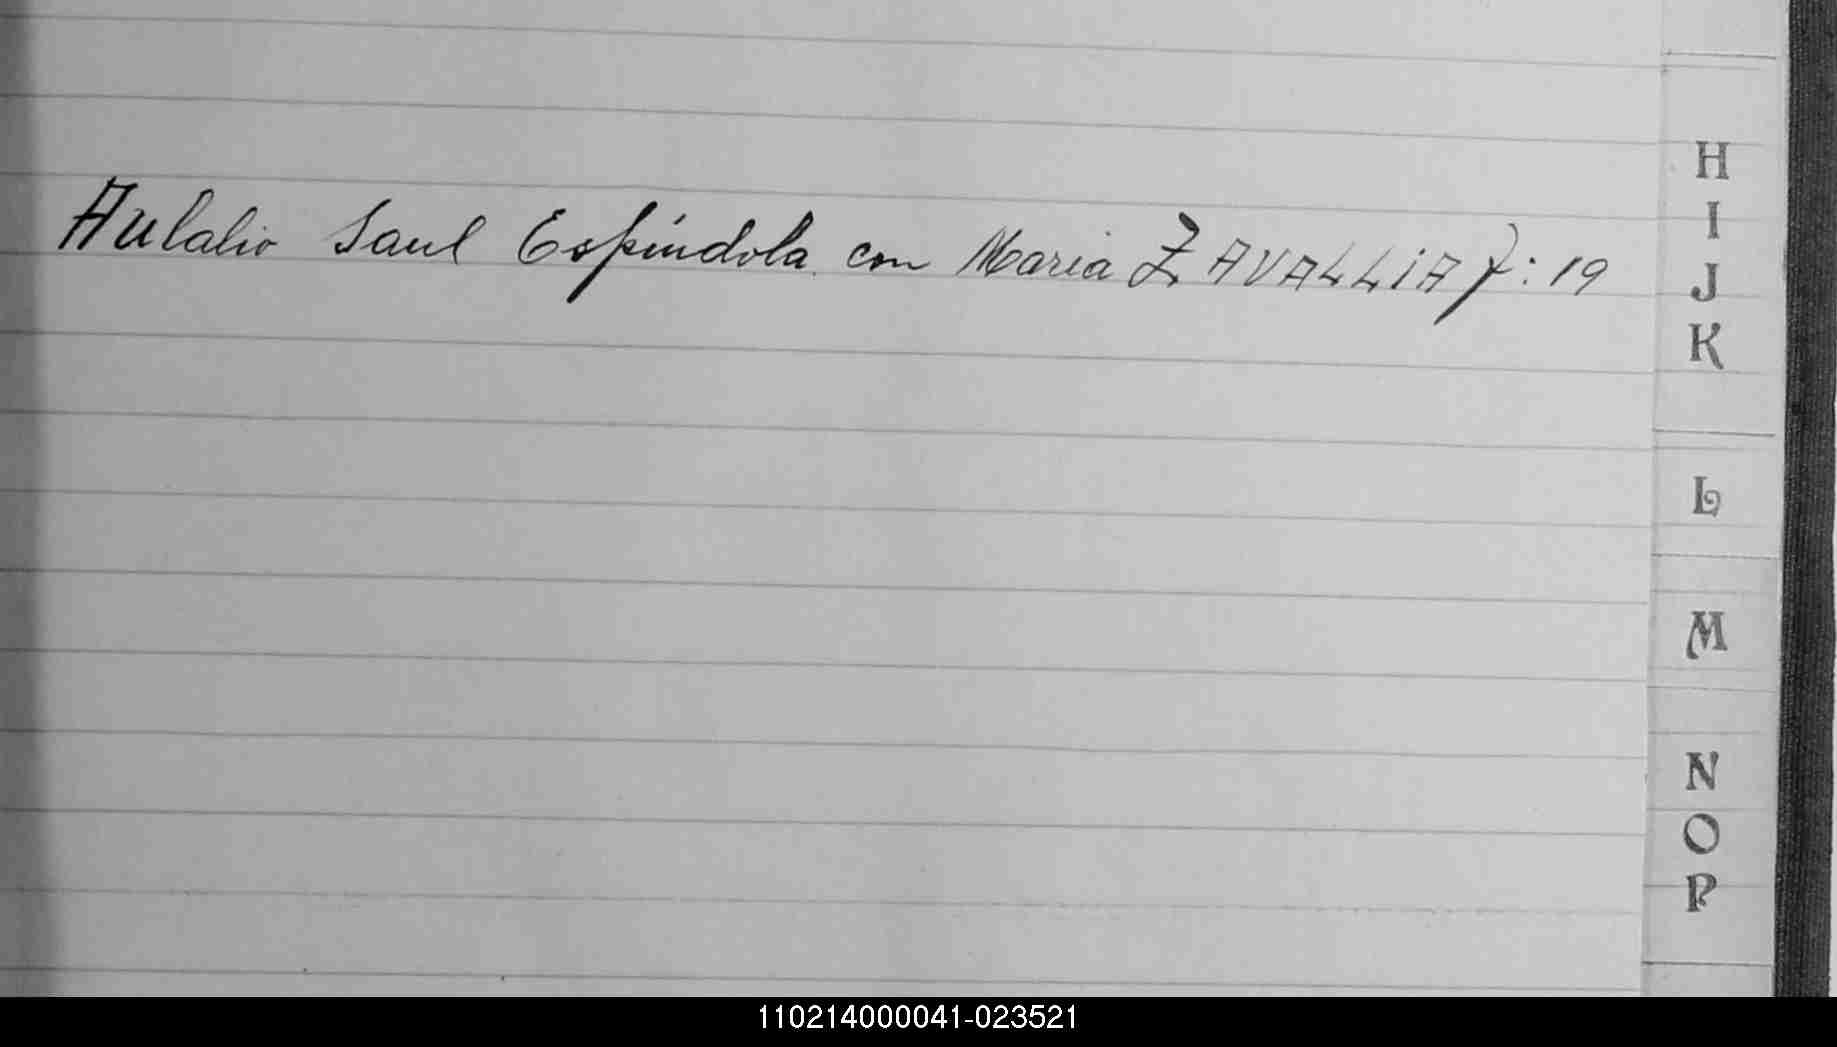 Aulalio Saul Espíndola con Maria ZAVALLiA f: 19
H
I
J
K
L
M
N
O
P
110214000041-023521